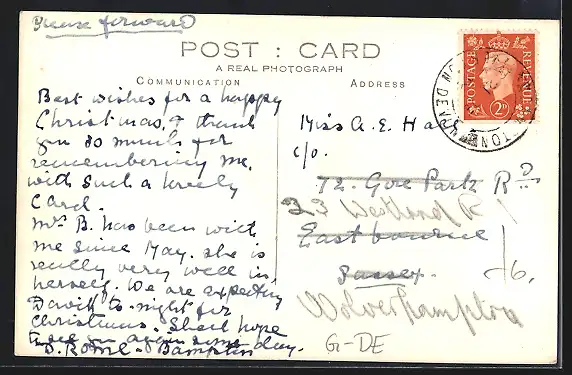 Please forward
POST : CARD
A REAL PHOTOGRAPH
COMMUNICATION
ADDRESS
POSTAGE
REVENUE
2D
Best wishes for a happy
Christmas, & thank
you so much for
remembering me,
with such a lovely
Card.
Mrs B. has been with
me since May. she is
really very well in
herself. We are expecting
David to-night for
Christmas. Shall hope
to see you again some day.
D. Rome - Bampton
Miss A. E. Hay
c/o.
72. Gore Park Rd
23 Westland Rd
Eastbourne
Sussex.
Wolverhampton
G-DE